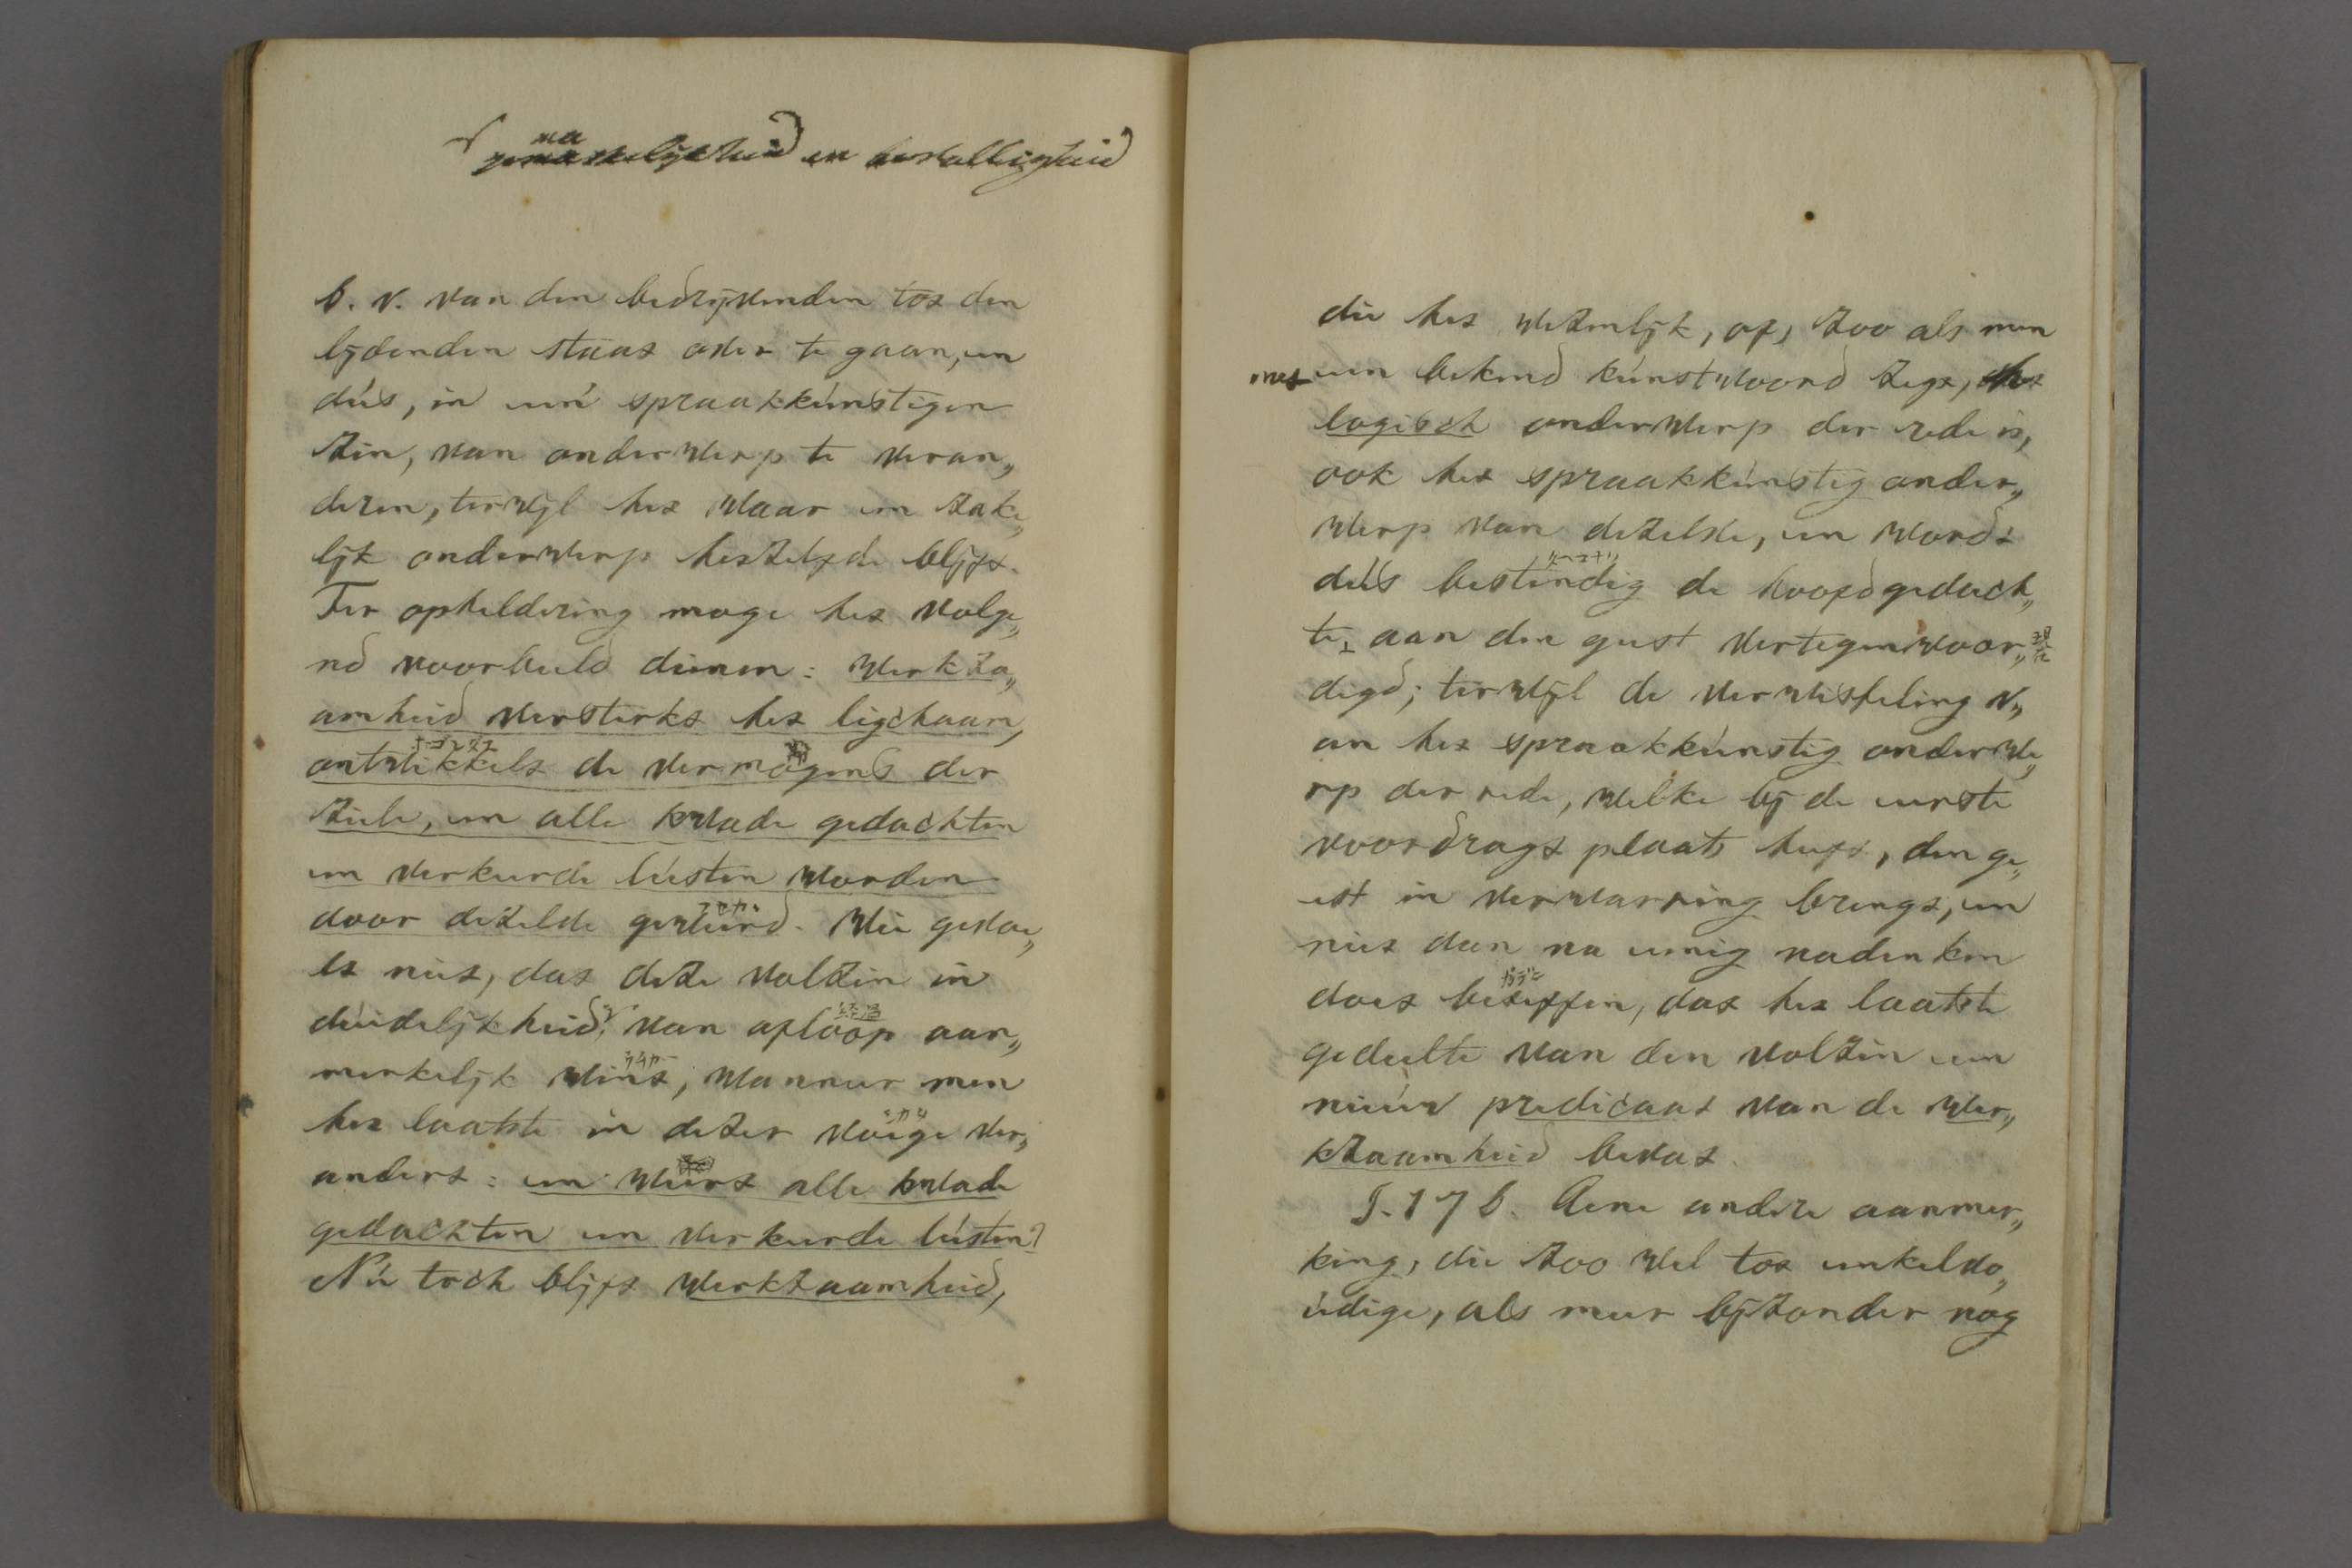 gemakkelijkheid en bevalligheid
b. v. van den bedrijvenden tot den
lijdenden staat over te gaan, en
dús, in een spraakkúnstigen
zin, van onderwerp te veran„
deren, terwijl het waar en zake„
lijk onderwerp hetzelfde blijft.
Ter opheldering moge het volge„
nd voorbeeld dienen: Werkza„
amheid versterkt het ligchaam,
ontwikkelt de vermogens der
ziele, en alle kwade gedachten
en verkeerde lústen worden
door dezelve geweerd. Wie gevoe„
lt niet, dat deze volzin in
dúidelijkheid, van afloop aan„
merkelijk wint, wanneer men
het laatste in dezer voege ver„
andert: en weert alle kwade
gedachten en verkeerde lústen?
Nú toch blijft werkzaamheid,
die het wezenlijk, of, zoo als men
met een bekend kúnstwoord zegt, het
logisch onderwerp der rede is,
ook het spraakkúnstig onder„
werp van dezelve, en wordt
dús bestendig de hoofdgedach„
te, aan den geest vertegenwoor„
digd; terwijl de verwisseling v„
an het spraakkúnstig onderwe„
rp der rede, welke bij de eerste
voordragt plaats heeft, den ge„
est in verwarring brengt, en
niet dan na eenig nadenken
doet beseffen, dat het laatste
gedeelte van den volzin een
nieúw predicaat van de wer„
kzaamheid bevat.
§. 176. Eene andere aanmer„
king, die zoo wel tot enkelvo„
údige, als meer bijzonder nog